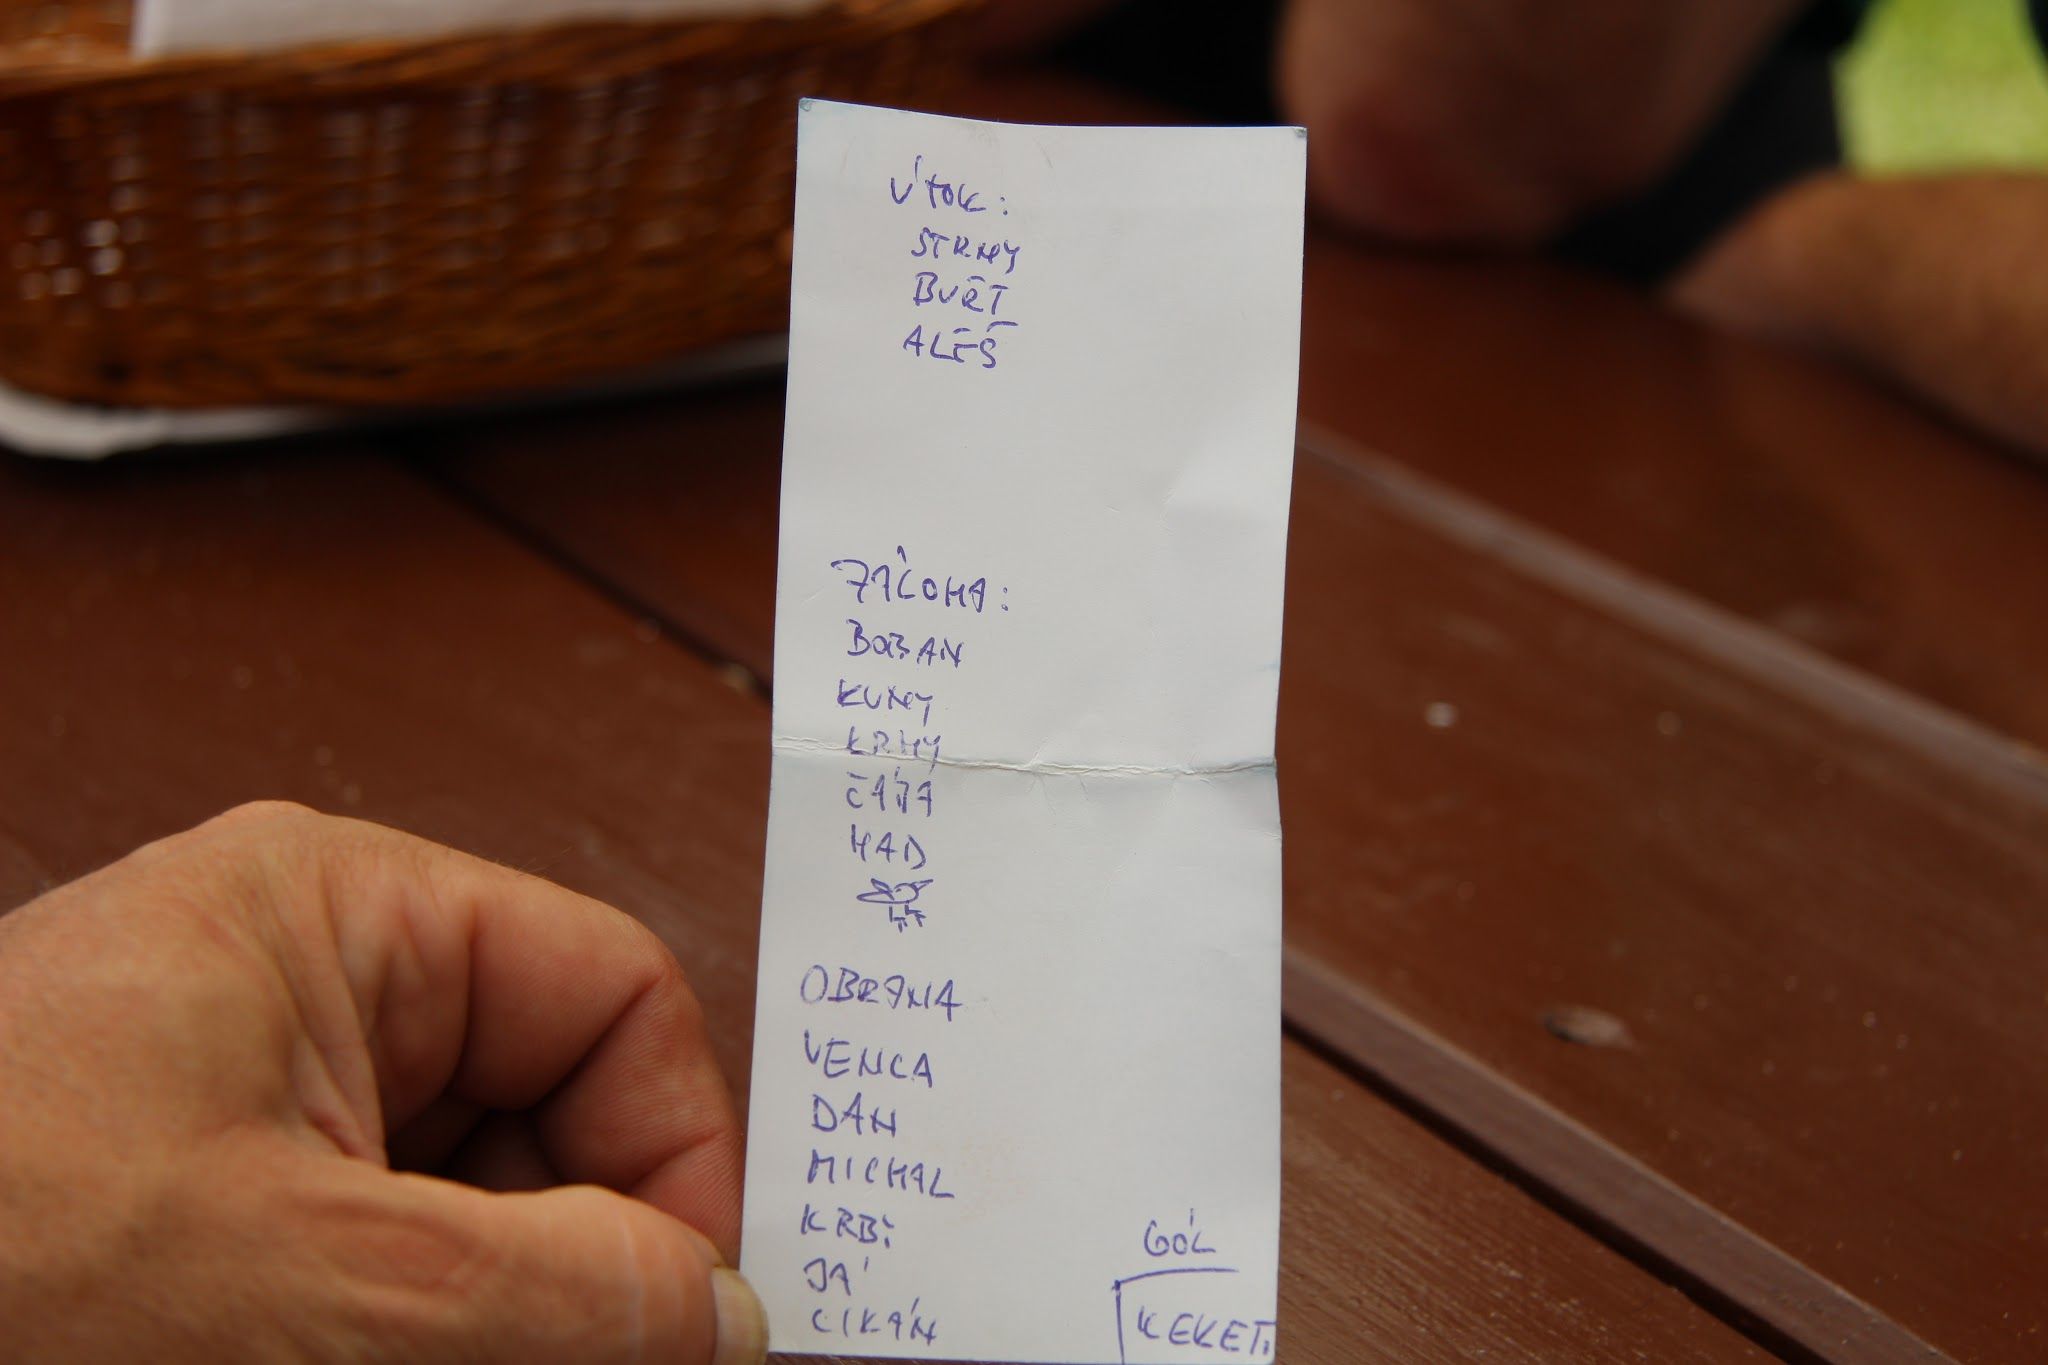 ÚTOK:
STRNY
BUŘT
ALEŠ
ZÁLOHA:
BOBAN
KUNY
KRHY
ČÁJA
HAD
OBRANA
VENCA
DAN
MICHAL
KRBi
JÁ
CIKÁN
GÓL
KEKETi